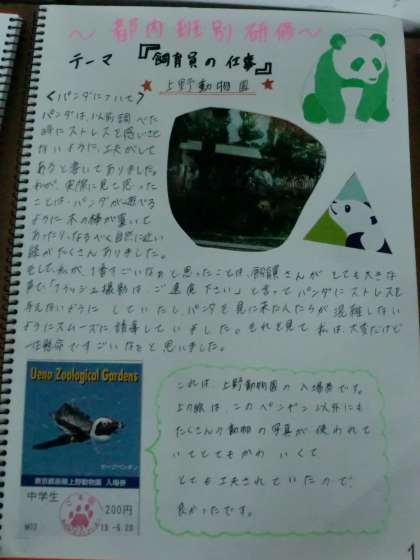 〜都内班別研修〜
テーマ『飼育員の仕事』
★上野動物園★
〈パンダについて〉
パンダは、以前調べた
時にストレスを感じさせ
ないように、工夫がして
あると書いてありました。
実際に見て思った
ことは、パンダが遊べる
ように木の橋が置いて
あったり、なるべく自然に近い
緑がたくさんありました。
そして、私が、1番すごいなぁと思ったことは、飼育員さんが とても大きな
声で「フラッシュ撮影は、ご遠慮下さい」と言ってパンダにストレスを
与えないように していたし、パンダを見に来た人たちが混雑しない
ようにスムーズに誘導していました。それを見て私は、大変だけど
一生懸命ですごいなぁと思いました。
Ueno Zoological Gardens
ケープペンギン
東京都恩賜上野動物園 入場券
中学生
200円
これは、上野動物園の入場券です。
上の絵は、このペンギン以外にも
たくさんの動物の写真が使われて
いてとてもかわいくて
とても工夫されていたので
良かったです。